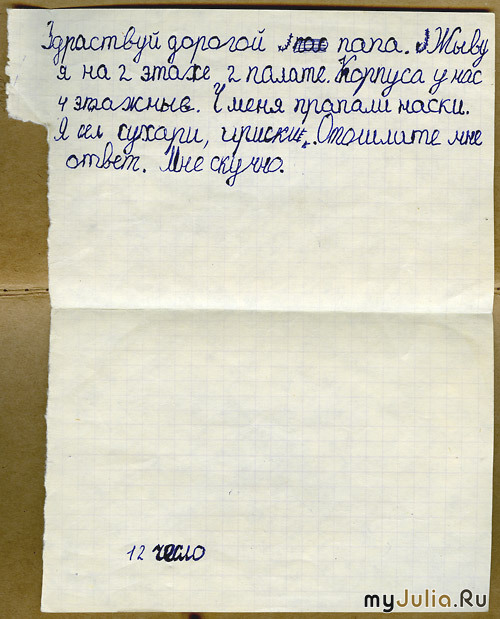 Здраствуй дорогой папа. Жыву
я на 2 этаже 2 палате. Корпуса у нас
4 этажные. У меня прапали наски.
Я сел сухари, ириски. Отошлите мне
ответ. Мне скучно.
12 число
myJulia.Ru